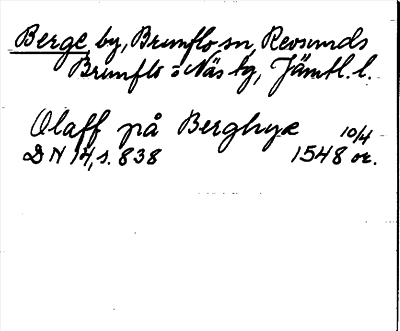 Berge by, Brunflo sn, Revsunds
Brunflo o Näs tg, Jämtl. l.
Olaff på Berghyæ 10/4
DN 14, s. 838 1548 or.